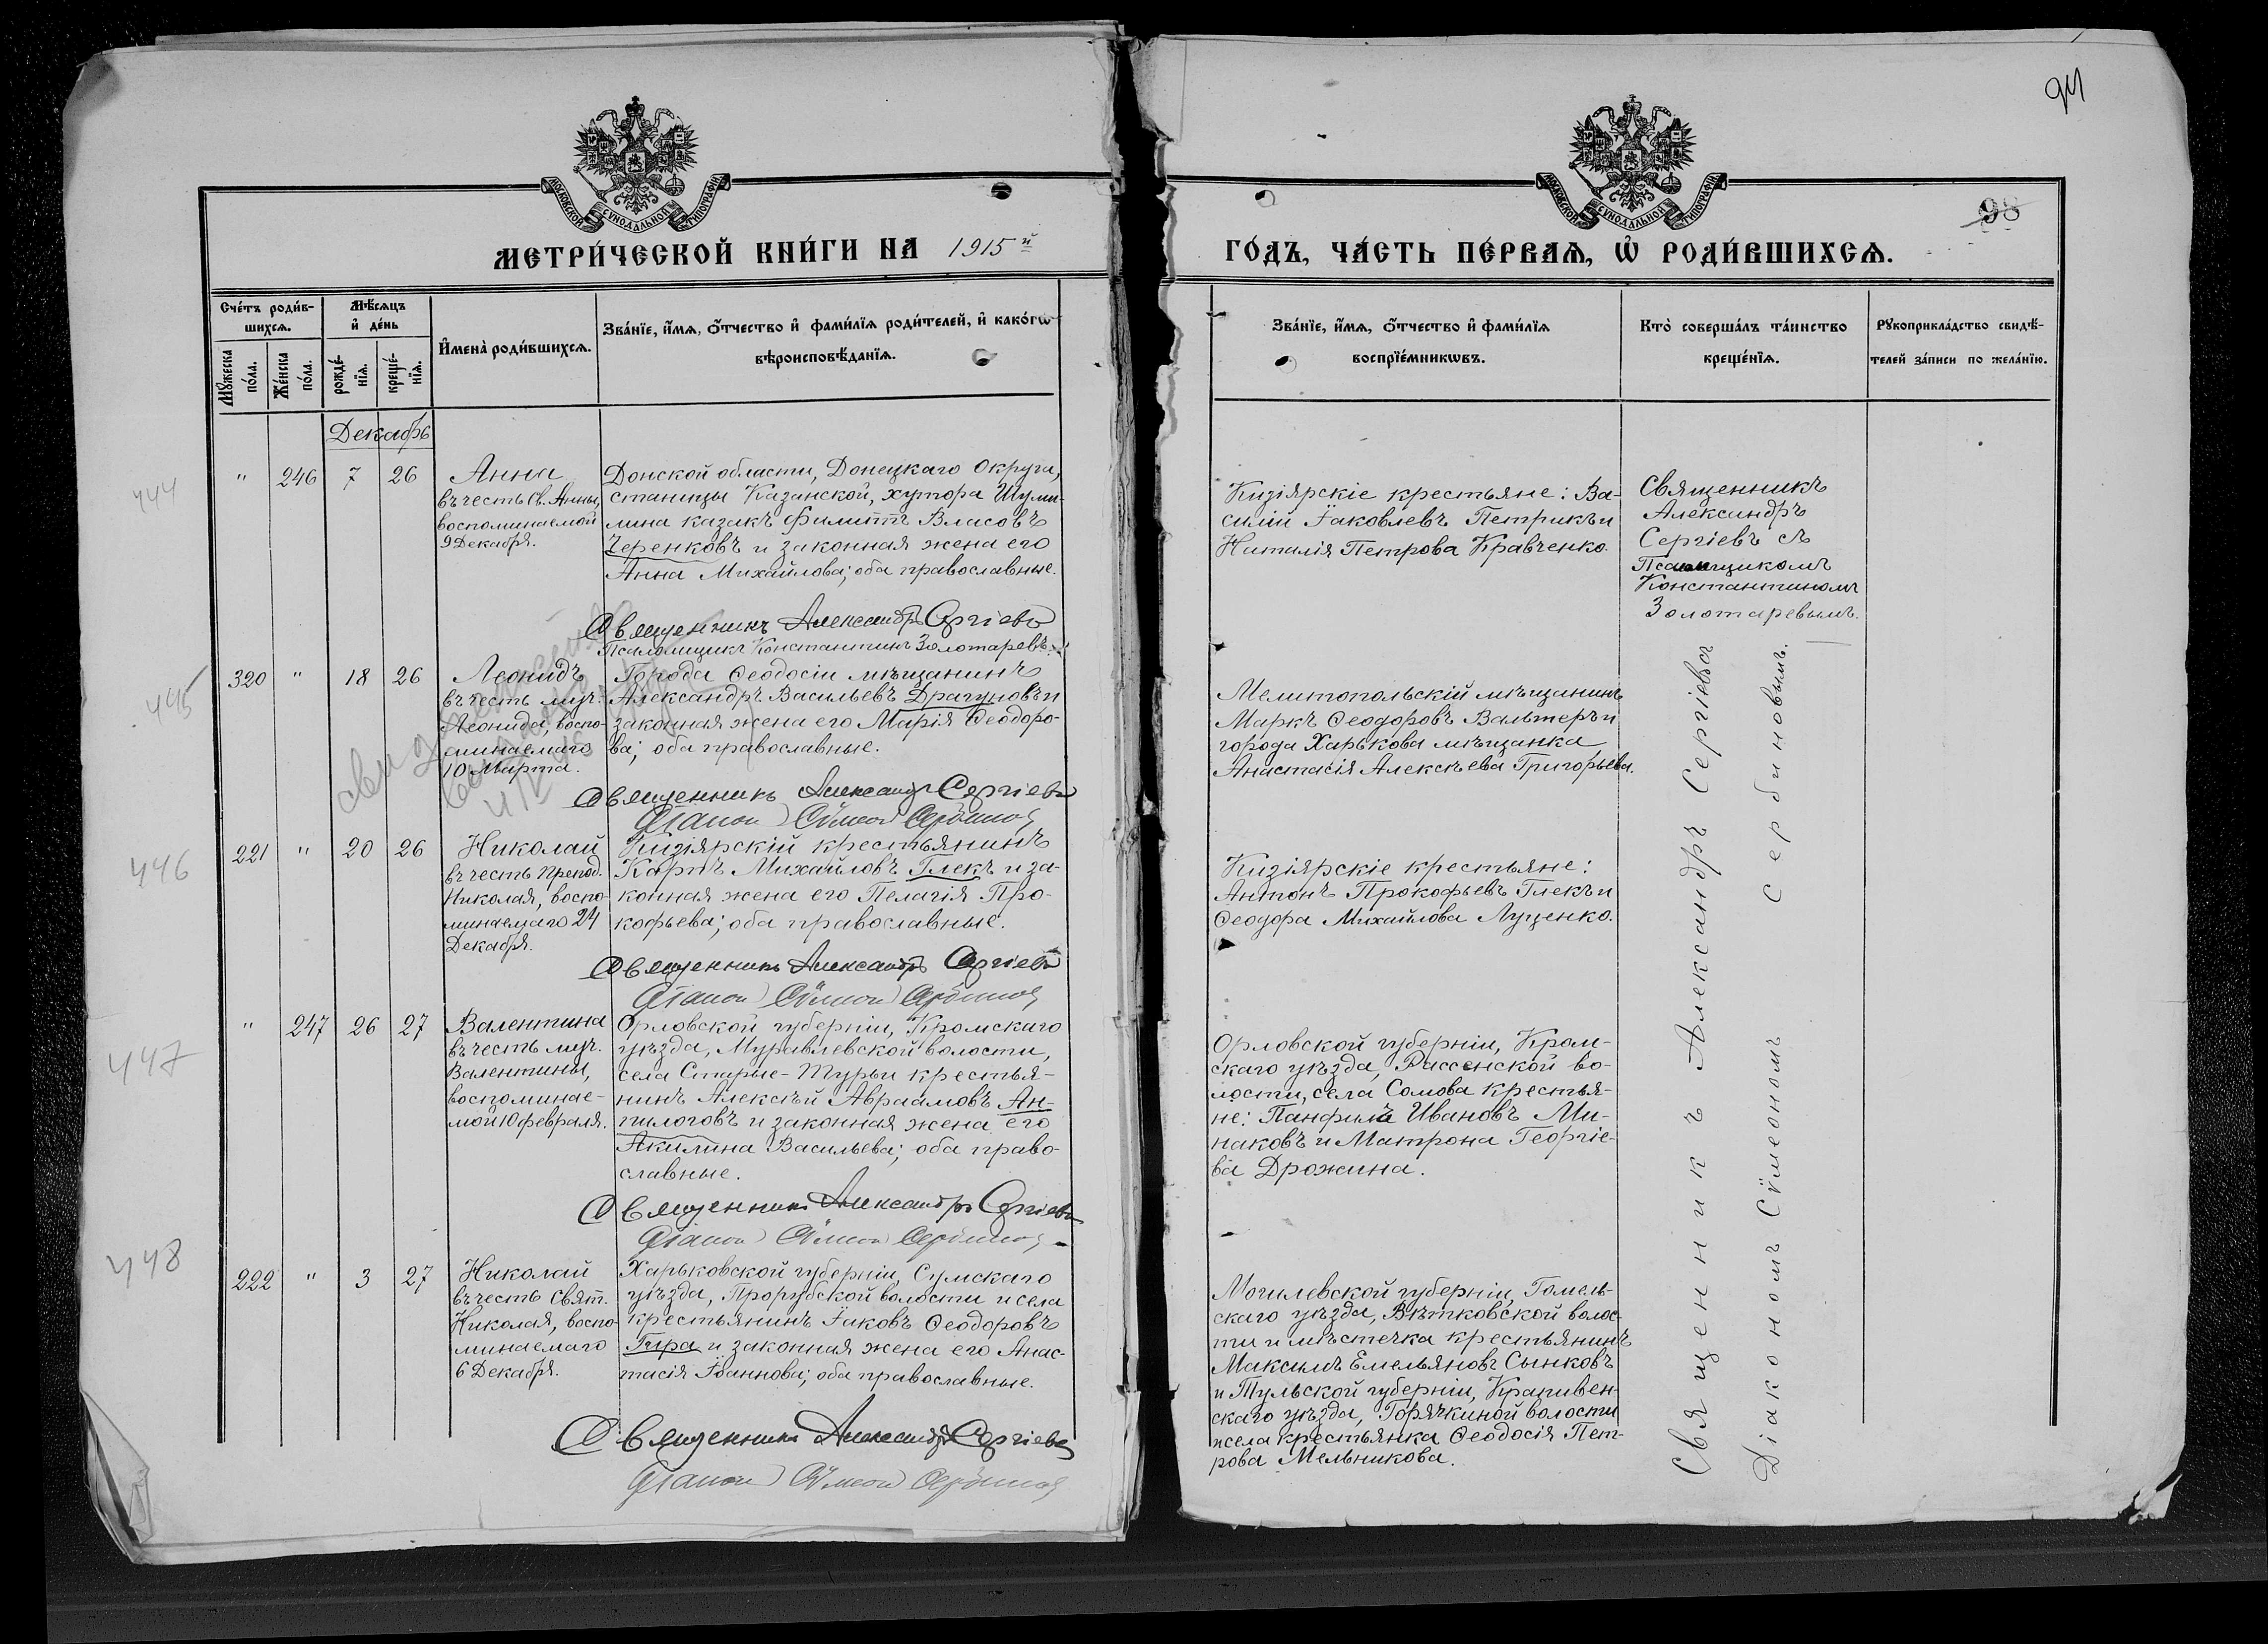 94
98
МОСКОВСКОЙ СѴНОДАЛЬНОЙ ТИПОГРАФІИ
МОСКОВСКОЙ СѴНОДАЛЬНОЙ ТИПОГРАФІИ
МЕТРИ́ЧЕСКОЙ КНИ́ГИ НА 1915й
ГО́ДЪ, ЧА́СТЬ ПЕ́РВАѦ, Ѡ҆ РОДИ́ВШИХСѦ.
Счéтъ роди́в-
шихсѧ.
Мꙋ́жеска
по́ла.
Же́нска
по́ла.
Мѣ́сѧцъ
и҆ де́нь
рожде́-
нїѧ.
креще́-
нїѧ.
И҆мена̀ роди́вшихсѧ.
Зва́нїе, и҆́мѧ, ѻ҆́тчество и҆ фами́лїѧ роди́телей, и҆ како́гѡ
вѣроисповѣ́данїѧ.
Зва́нїе, и҆́мѧ, ѻ҆́тчество и҆ фами́лїѧ
воспрїе́мникѡвъ.
Кто̀ соверша́лъ та́инство
креще́нїѧ.
Рꙋкоприкла́дство свидѣ́-
телей за́писи по жела́нїю.
Декабрь
444
" 246 7 26
Анна
въ честь Св. Анны,
воспоминаемой
9 Декабря.
Донской области, Донецкаго Округа,
станицы Казанской, хутора Шуми-
лина казакъ Филиппъ Власовъ
Черенковъ и законная жена его
Анна Михайлова; оба православные.
Священникъ Александръ Сергіевъ
Псаломщикъ Константинъ Золотаревъ.
Кизіярскіе крестьяне: Ва-
силій Іаковлевъ Петрикъ и
Наталія Петрова Кравченко.
Священникъ
Александръ
Сергіевъ съ
Псаломщикомъ
Константиномъ
Золотаревымъ.
445
320 " 18 26
Леонидъ
въ честь муч.
Леонида, воспо-
минаемаго
10 Марта.
Города Ѳеодосіи мѣщанинъ
Александръ Васильевъ Драгуновъ и
законная жена его Марія Ѳеодоро-
ва; оба православные.
Священникъ Александръ Сергіевъ
Діаконъ Сѵмеонъ Сербиновъ
Мелитопольскій мѣщанинъ
Маркъ Ѳеодоровъ Вальтеръ и
города Харькова мѣщанка
Анастасія Алексѣева Григорьева.
446
221 " 20 26
Николай
въ честь Препод.
Николая, воспо-
минаемаго 24
Декабря.
Кизіярскій крестьянинъ
Карпъ Михайловъ Глекъ и за-
конная жена его Пелагія Про-
кофьева; оба православные.
Священникъ Александръ Сергіевъ
Діаконъ Сѵмеонъ Сербиновъ
Кизіярскіе крестьяне:
Антонъ Прокофьевъ Глекъ и
Ѳеодора Михайлова Луценко.
447
" 247 26 27
Валентина
въ честь муч.
Валентины,
воспоминае-
мой 10 февраля.
Орловской губерніи, Кромскаго
уѣзда, Муравлевской волости,
села Старые-Турьи крестья-
нинъ Алексѣй Авраамовъ Ан-
пилоговъ и законная жена его
Акилина Васильева; оба право-
славные.
Священникъ Александръ Сергіевъ
Діаконъ Сѵмеонъ Сербиновъ
Орловской губерніи, Кром-
скаго уѣзда, Рассенской во-
лости, села Сомова крестья-
не: Панфилъ Ивановъ Ми-
наковъ и Матрона Георгіе-
ва Дрожина.
448
222 " 3 27
Николай
въ честь Свят.
Николая, воспо-
минаемаго
6 Декабря.
Харьковской губерніи, Сумскаго
уѣзда, Прорубской волости и села
крестьянинъ Іаковъ Ѳеодоровъ
Гира и законная жена его Анас-
тасія Іоаннова; оба православные.
Священникъ Александръ Сергіевъ
Діаконъ Сѵмеонъ Сербиновъ
Могилевской губерніи, Гомель-
скаго уѣзда, Вѣтковской волос-
ти и мѣстечка крестьянинъ
Максимъ Емельяновъ Сынковъ
и Тульской губерніи, Крапивен-
скаго уѣзда, Горячкиной волости
и села крестьянка Ѳеодосія Пет-
рова Мельникова.
Священникъ Александръ Сергіевъ
Діакономъ Сѵмеономъ Сербиновымъ.